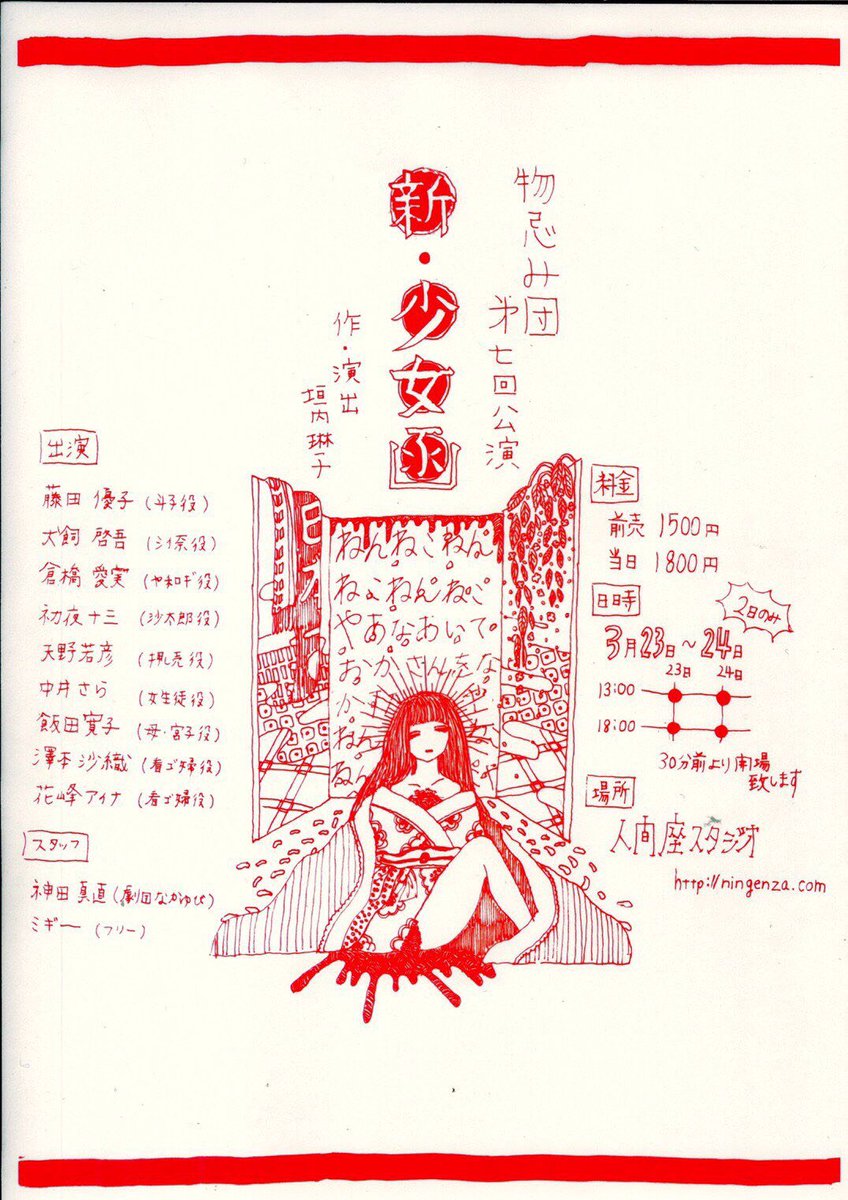 物忌み団
第七回公演
新・少女函
作・演出
垣内琳子
出演
藤田 優子 (斗子役)
犬飼 啓吾 (シイ奈役)
倉橋 愛実 (ヤ和ギ役)
初夜 十三 (沙太郎役)
天野若彦 (押し売役)
中井さら (女生徒役)
飯田寛子 (母・宮子役)
澤本 沙織 (看ゴ婦役)
花峰アイナ (看ゴ婦役)
スタッフ
神田真直 (劇団なかゆび)
ミギー (フリー)
料金
前売 1500円
当日 1800円
日時
2日のみ
3月23日〜24日
23日 24日
13:00
18:00
30分前より開場
致します
場所
人間座スタジオ
http://ningenza.com
ねんねこねん
ねこねんねこ
やあなあいて
おかさんをな